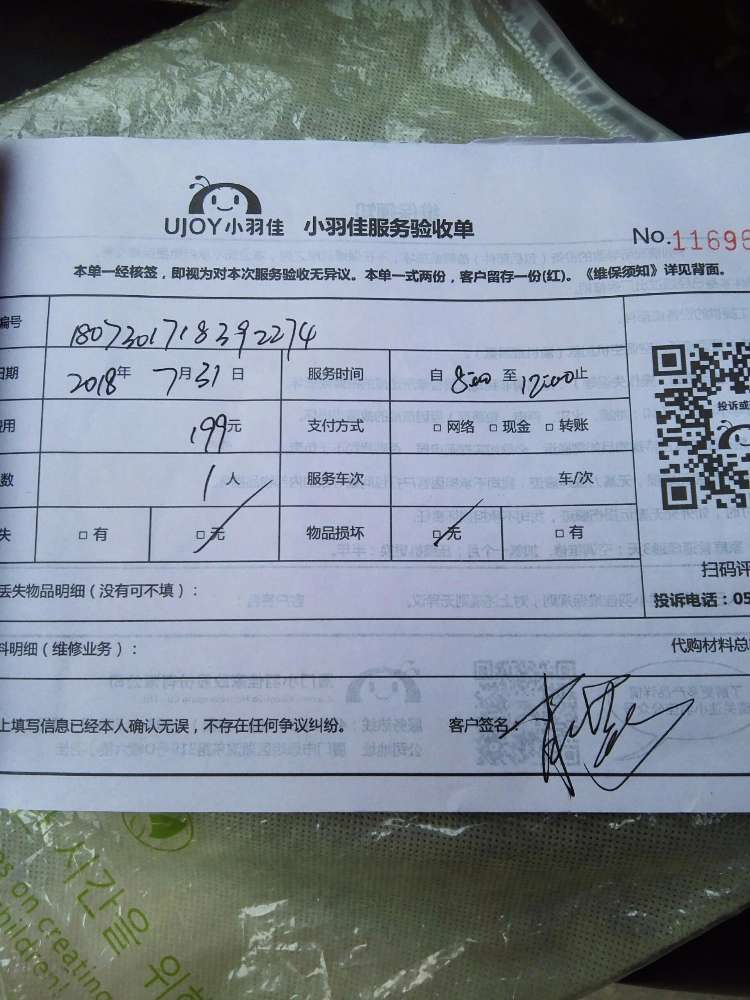 UJOY小羽佳 小羽佳服务验收单
No.11696
本单一经核签，即视为对本次服务验收无异议。本单一式两份，客户留存一份(红)。《维保须知》详见背面。
编号 1807301718392274
日期 2018年 7月31日 服务时间 自 8:00 至 12:00 止
费用 199元 支付方式 □ 网络 □ 现金 □ 转账
数 1人 服务车次 车/次
失 □ 有 □ 无 物品损坏 □ 无 □ 有
投诉或
扫码评
丢失物品明细（没有可不填）：
投诉电话：05
料明细（维修业务）： 代购材料总
上填写信息已经本人确认无误，不存在任何争议纠纷。 客户签名：
시간을 위한
s on creating
children!